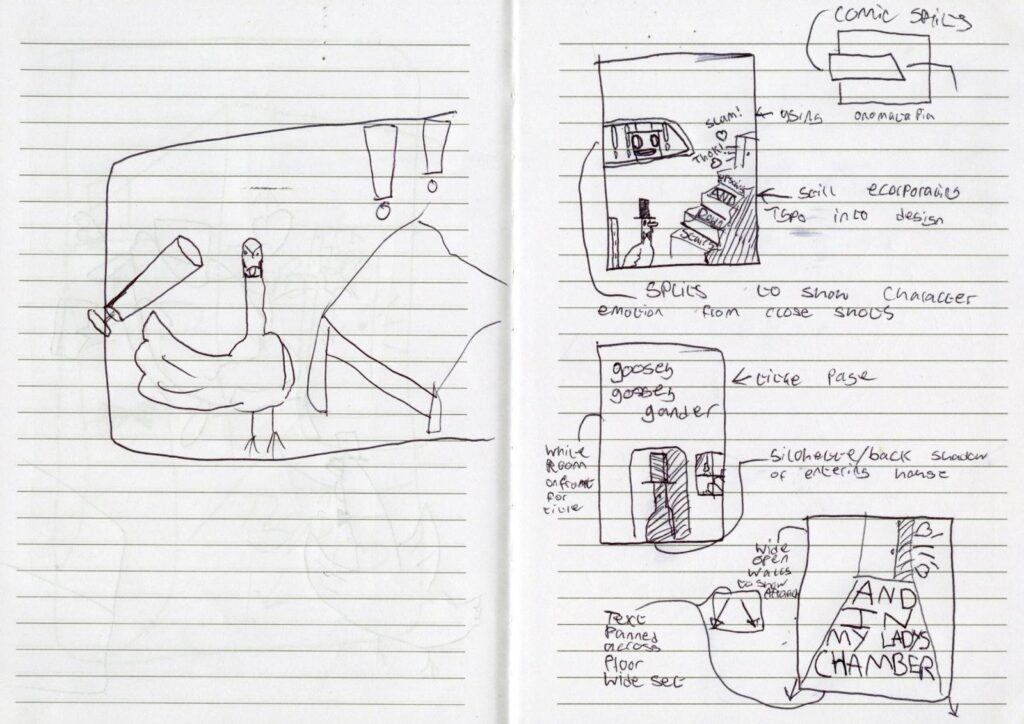 !!
COMIC SPLITS
SLAM!
THOK!
← using onomatapia
upstairs
AND
Down
Stairs
← Still ecorporating
Typo into design
SPLITS to show character
emotion from close shots
goosey
gossey
gander
← title page
White
Room
on front
for
title
silohette/back shadow
of entering house
Wide
open
walls
to show
Text
Panned
across
floor
Wide set
AND
IN
MY LADYS
CHAMBER